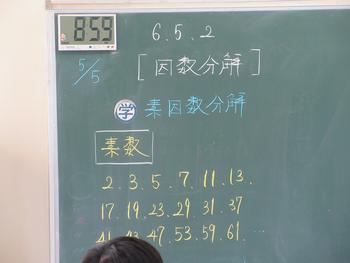 8:59
6.5.2
5/5
[因数分解]
学 素因数分解
素数
2.3.5.7.11.13.
17.19.23.29.31.37
41.43.47.53.59.61.